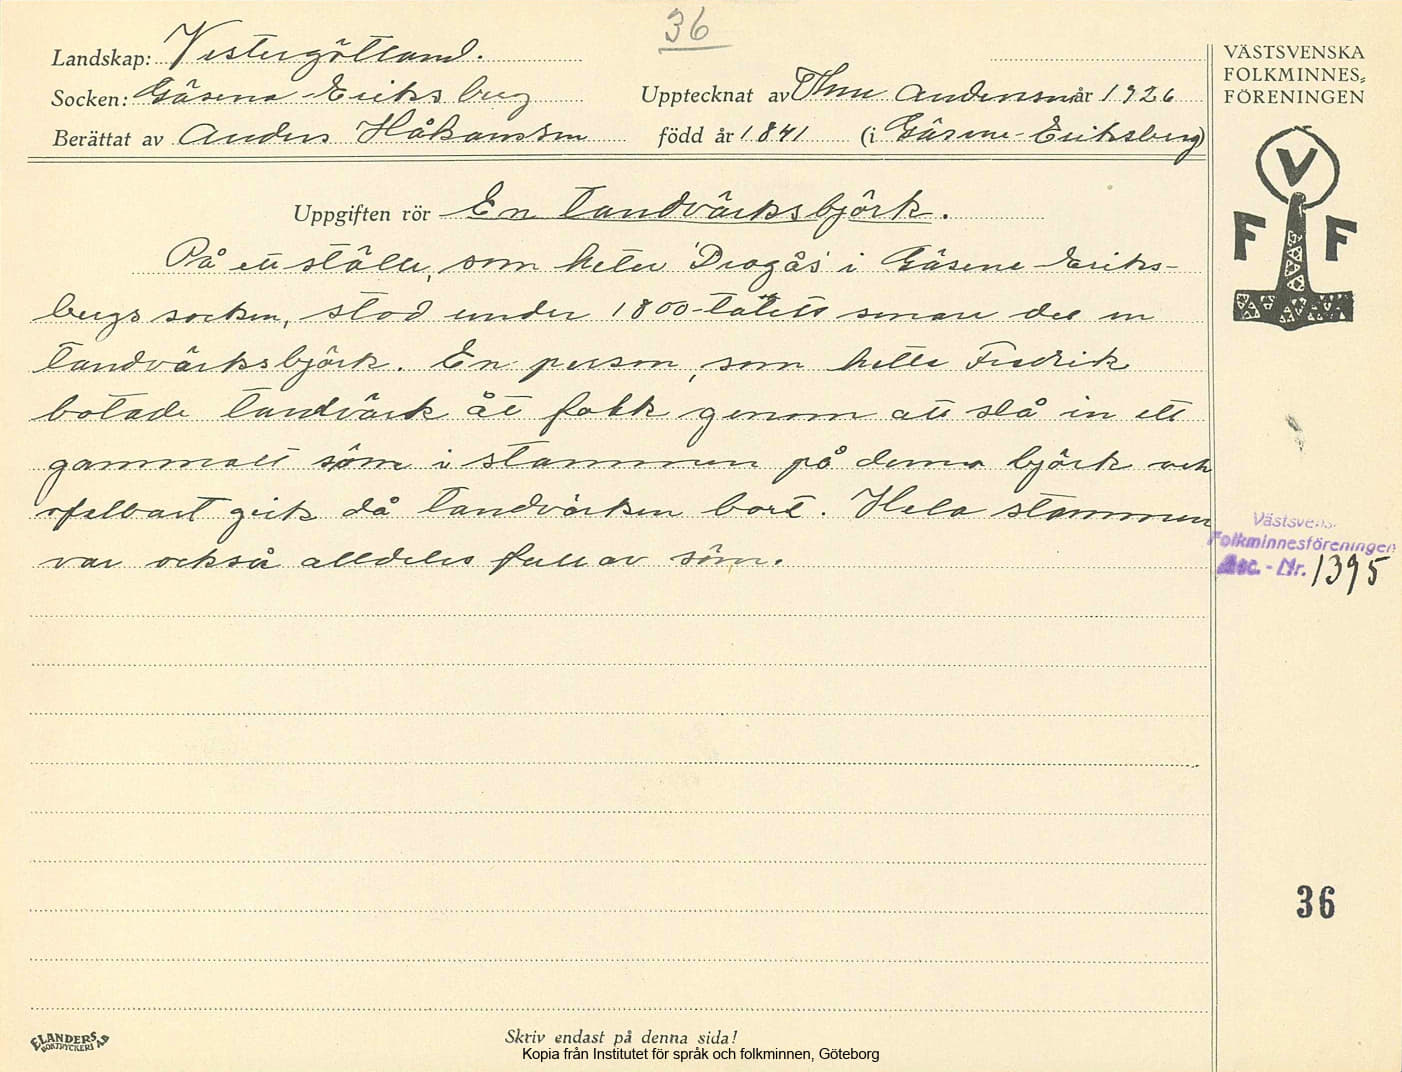 36
Landskap: Vestergötland.
Socken: Gäsene-Eriksberg
Upptecknat av Thure Andersson år 1926
Berättat av Anders Håkansson född år 1841 (i Gäsene-Eriksberg)
VÄSTSVENSKA
FOLKMINNES-
FÖRENINGEN
V
F F
Uppgiften rör En tandvärksbjörk.
På ett ställe, som heter i Gäsene Eriks-
bergs socken, stod under 1800-talets senare del en
tandvärksbjörk. En person, som hette Fredrik
botade tandvärk åt folk genom att slå in ett
gammalt söm i stammen på denna björk och
ofelbart gick då tandvärken bort. Hela stammen
var också alldeles full av söm.
Västsvens.
Folkminnesföreningen
Acc. - Nr. 1395
36
ELANDERS
BOKTRYCKERI AB
Skriv endast på denna sida!
Kopia från Institutet för språk och folkminnen, Göteborg